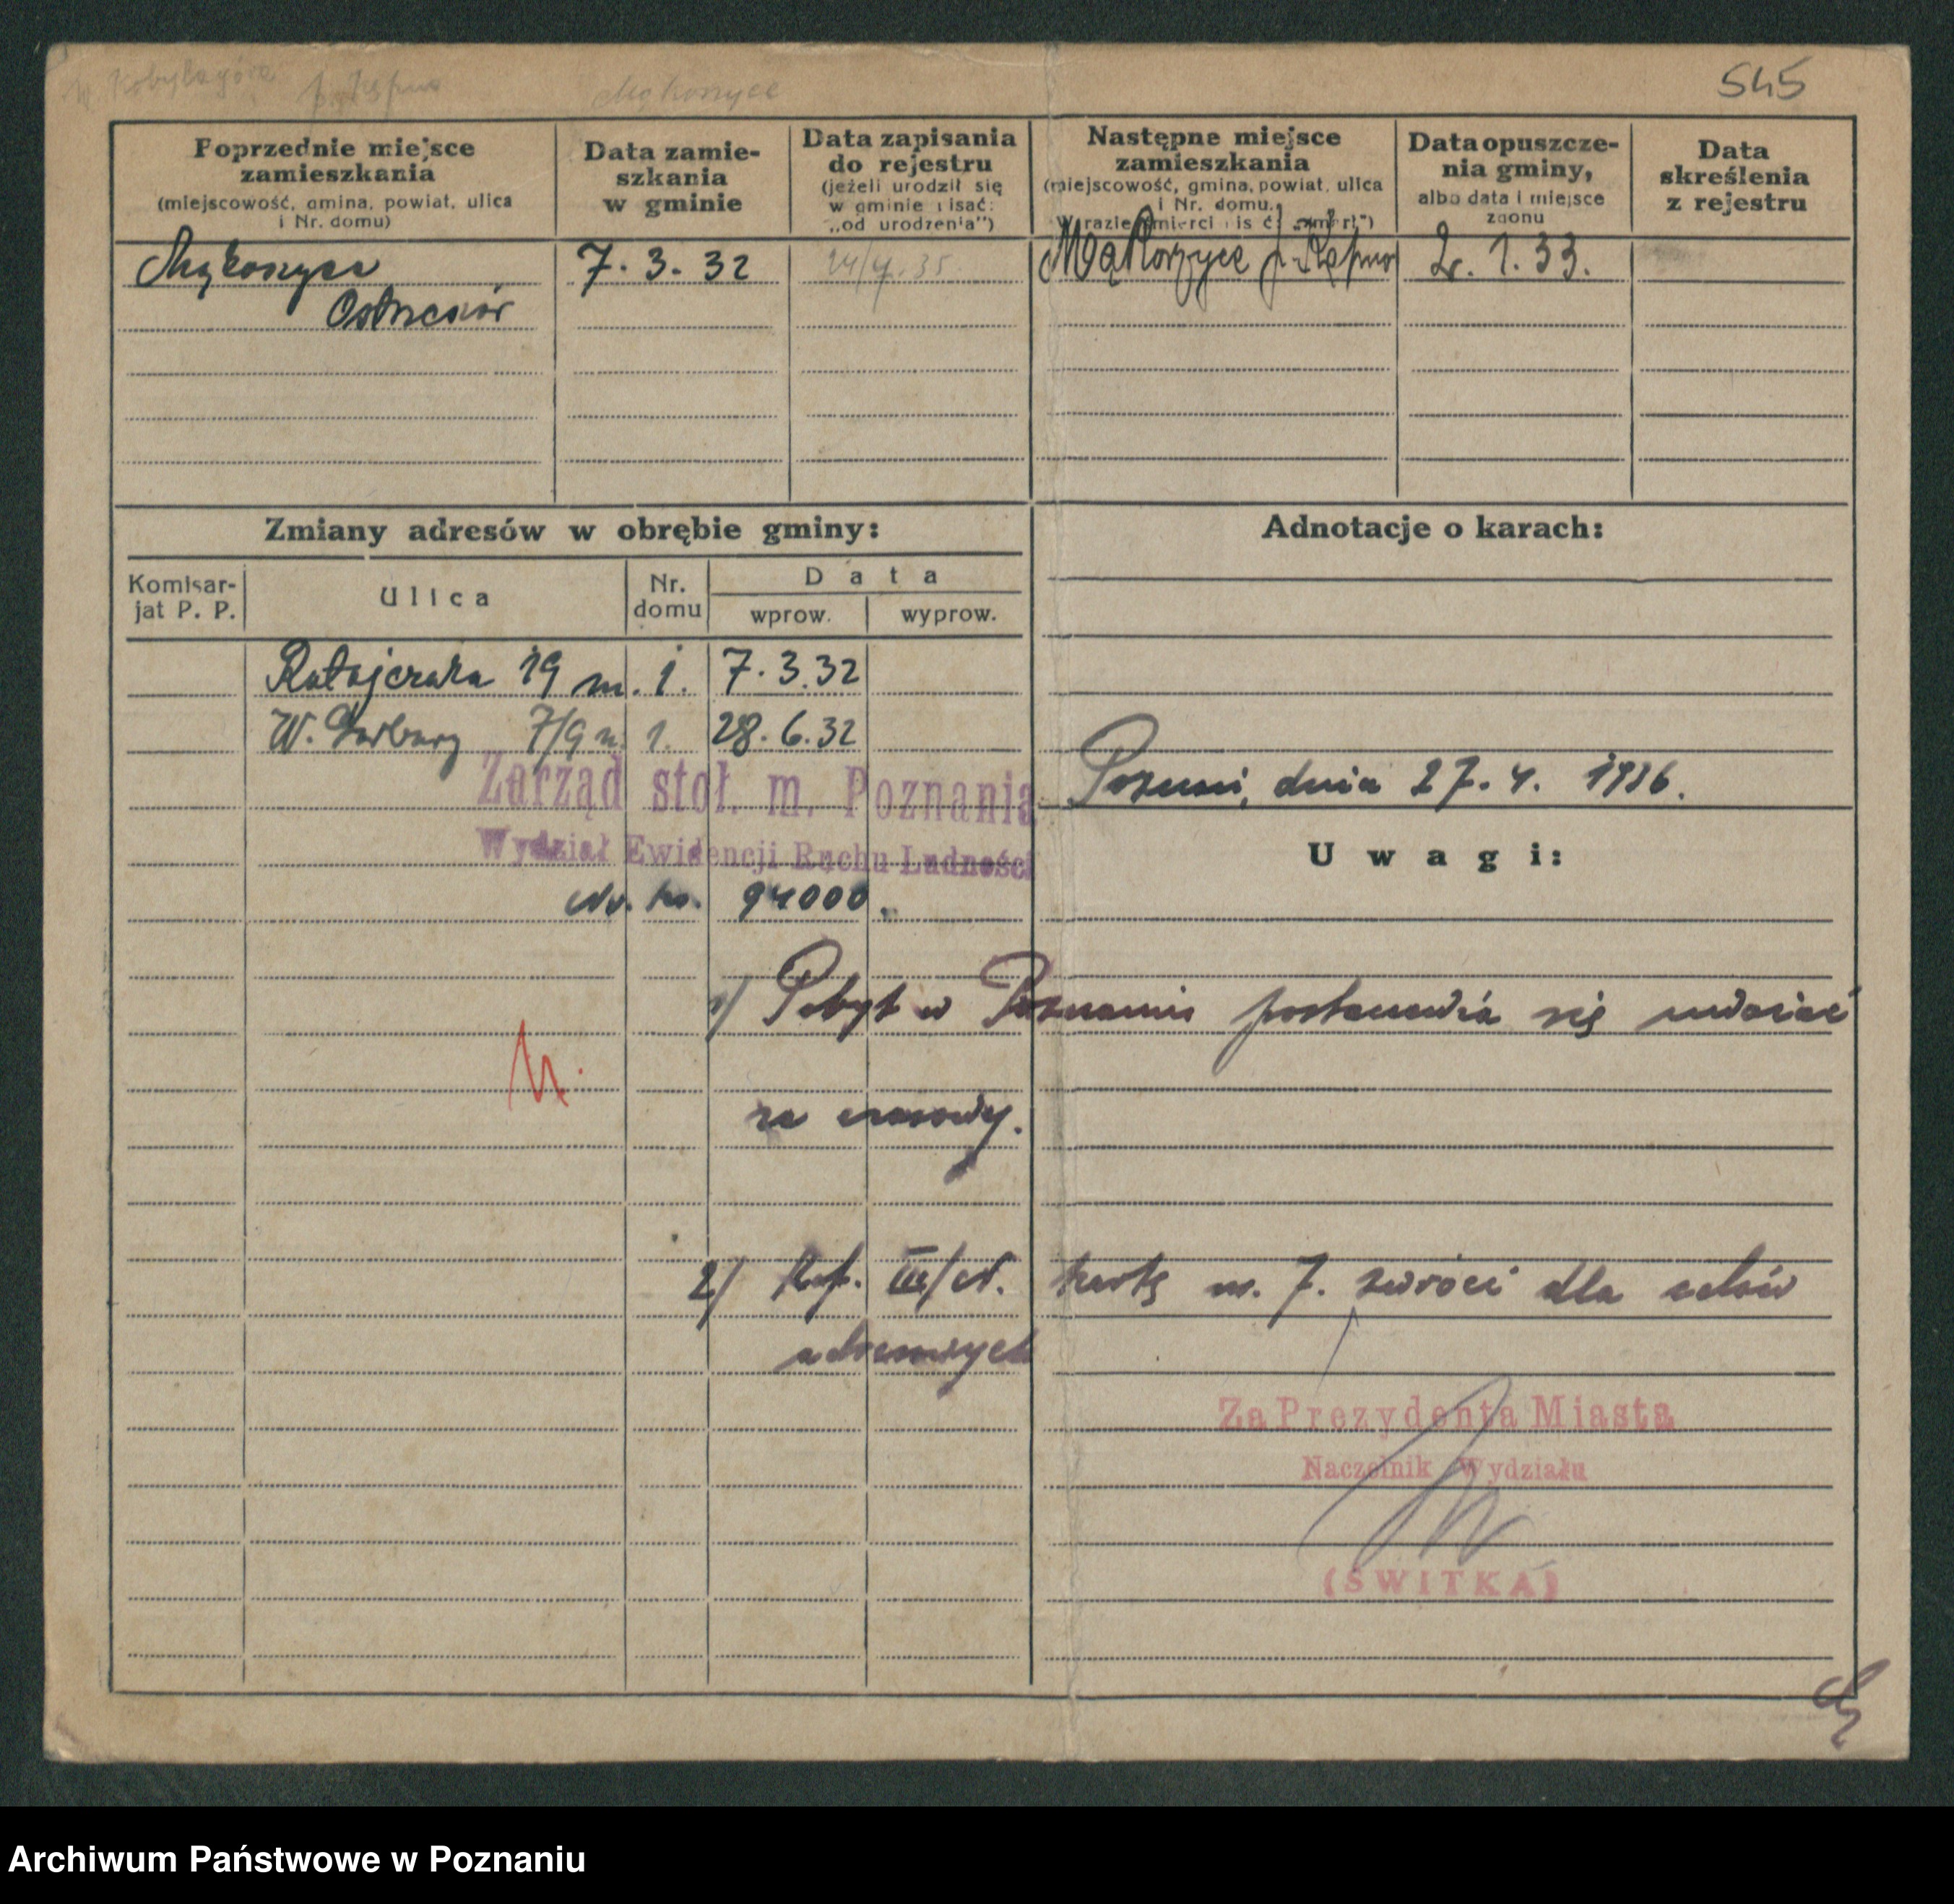 Kobylagóra p. Kępno Mąkoszyce 545
Poprzednie miejsce
zamieszkania
(miejscowość, gmina, powiat, ulica
i Nr. domu)
Data zamie-
szkania
w gminie
Data zapisania
do rejestru
(jeżeli urodził się
w gminie pisać:
„od urodzenia")
Następne miejsce
zamieszkania
(miejscowość, gmina, powiat, ulica
i Nr. domu.
W razie śmierci pisać: „zmarł")
Data opuszcze-
nia gminy,
albo data i miejsce
zgonu
Data
skreślenia
z rejestru
Mąkoszyce 7. 3. 32 Mąkoszyce p. Kępno 2. 1. 33.
Ostrzeszów
Zmiany adresów w obrębie gminy:
Komisar-
jat P. P.
Ulica
Nr.
domu
Data
wprow. wyprow.
Ratajczaka 19 m. 1. 7. 3. 32
W. Garbary 7/9 m. 1. 28. 6. 32
Zarząd stoł. m. Poznania
Wydział Ewidencji Ruchu Ludności
Nr. ks. 94000.
Adnotacje o karach:
Poznań, dnia 27. 4. 1936.
Uwagi:
1/ Pobyt w Poznaniu postanawia się uważać
za czasowy.
2/ Ref. III/A. kartę m. 7. zwróci dla celów
adresowych
Za Prezydenta Miasta
Naczelnik Wydziału
(ŚWITKA)
Archiwum Państwowe w Poznaniu